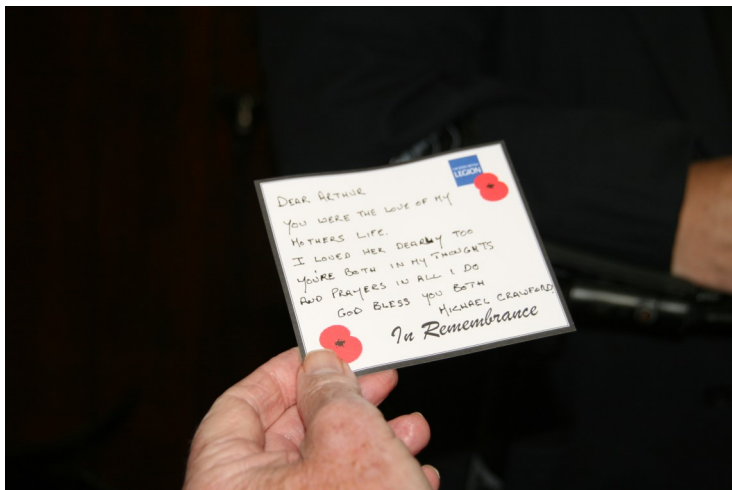 LEGION
DEAR ARTHUR
YOU WERE THE LOVE OF MY
MOTHERS LIFE.
I LOVED HER DEARLY TOO
YOU'RE BOTH IN MY THOUGHTS
AND PRAYERS IN ALL I DO
GOD BLESS YOU BOTH
MICHAEL CRAWFORD
In Remembrance